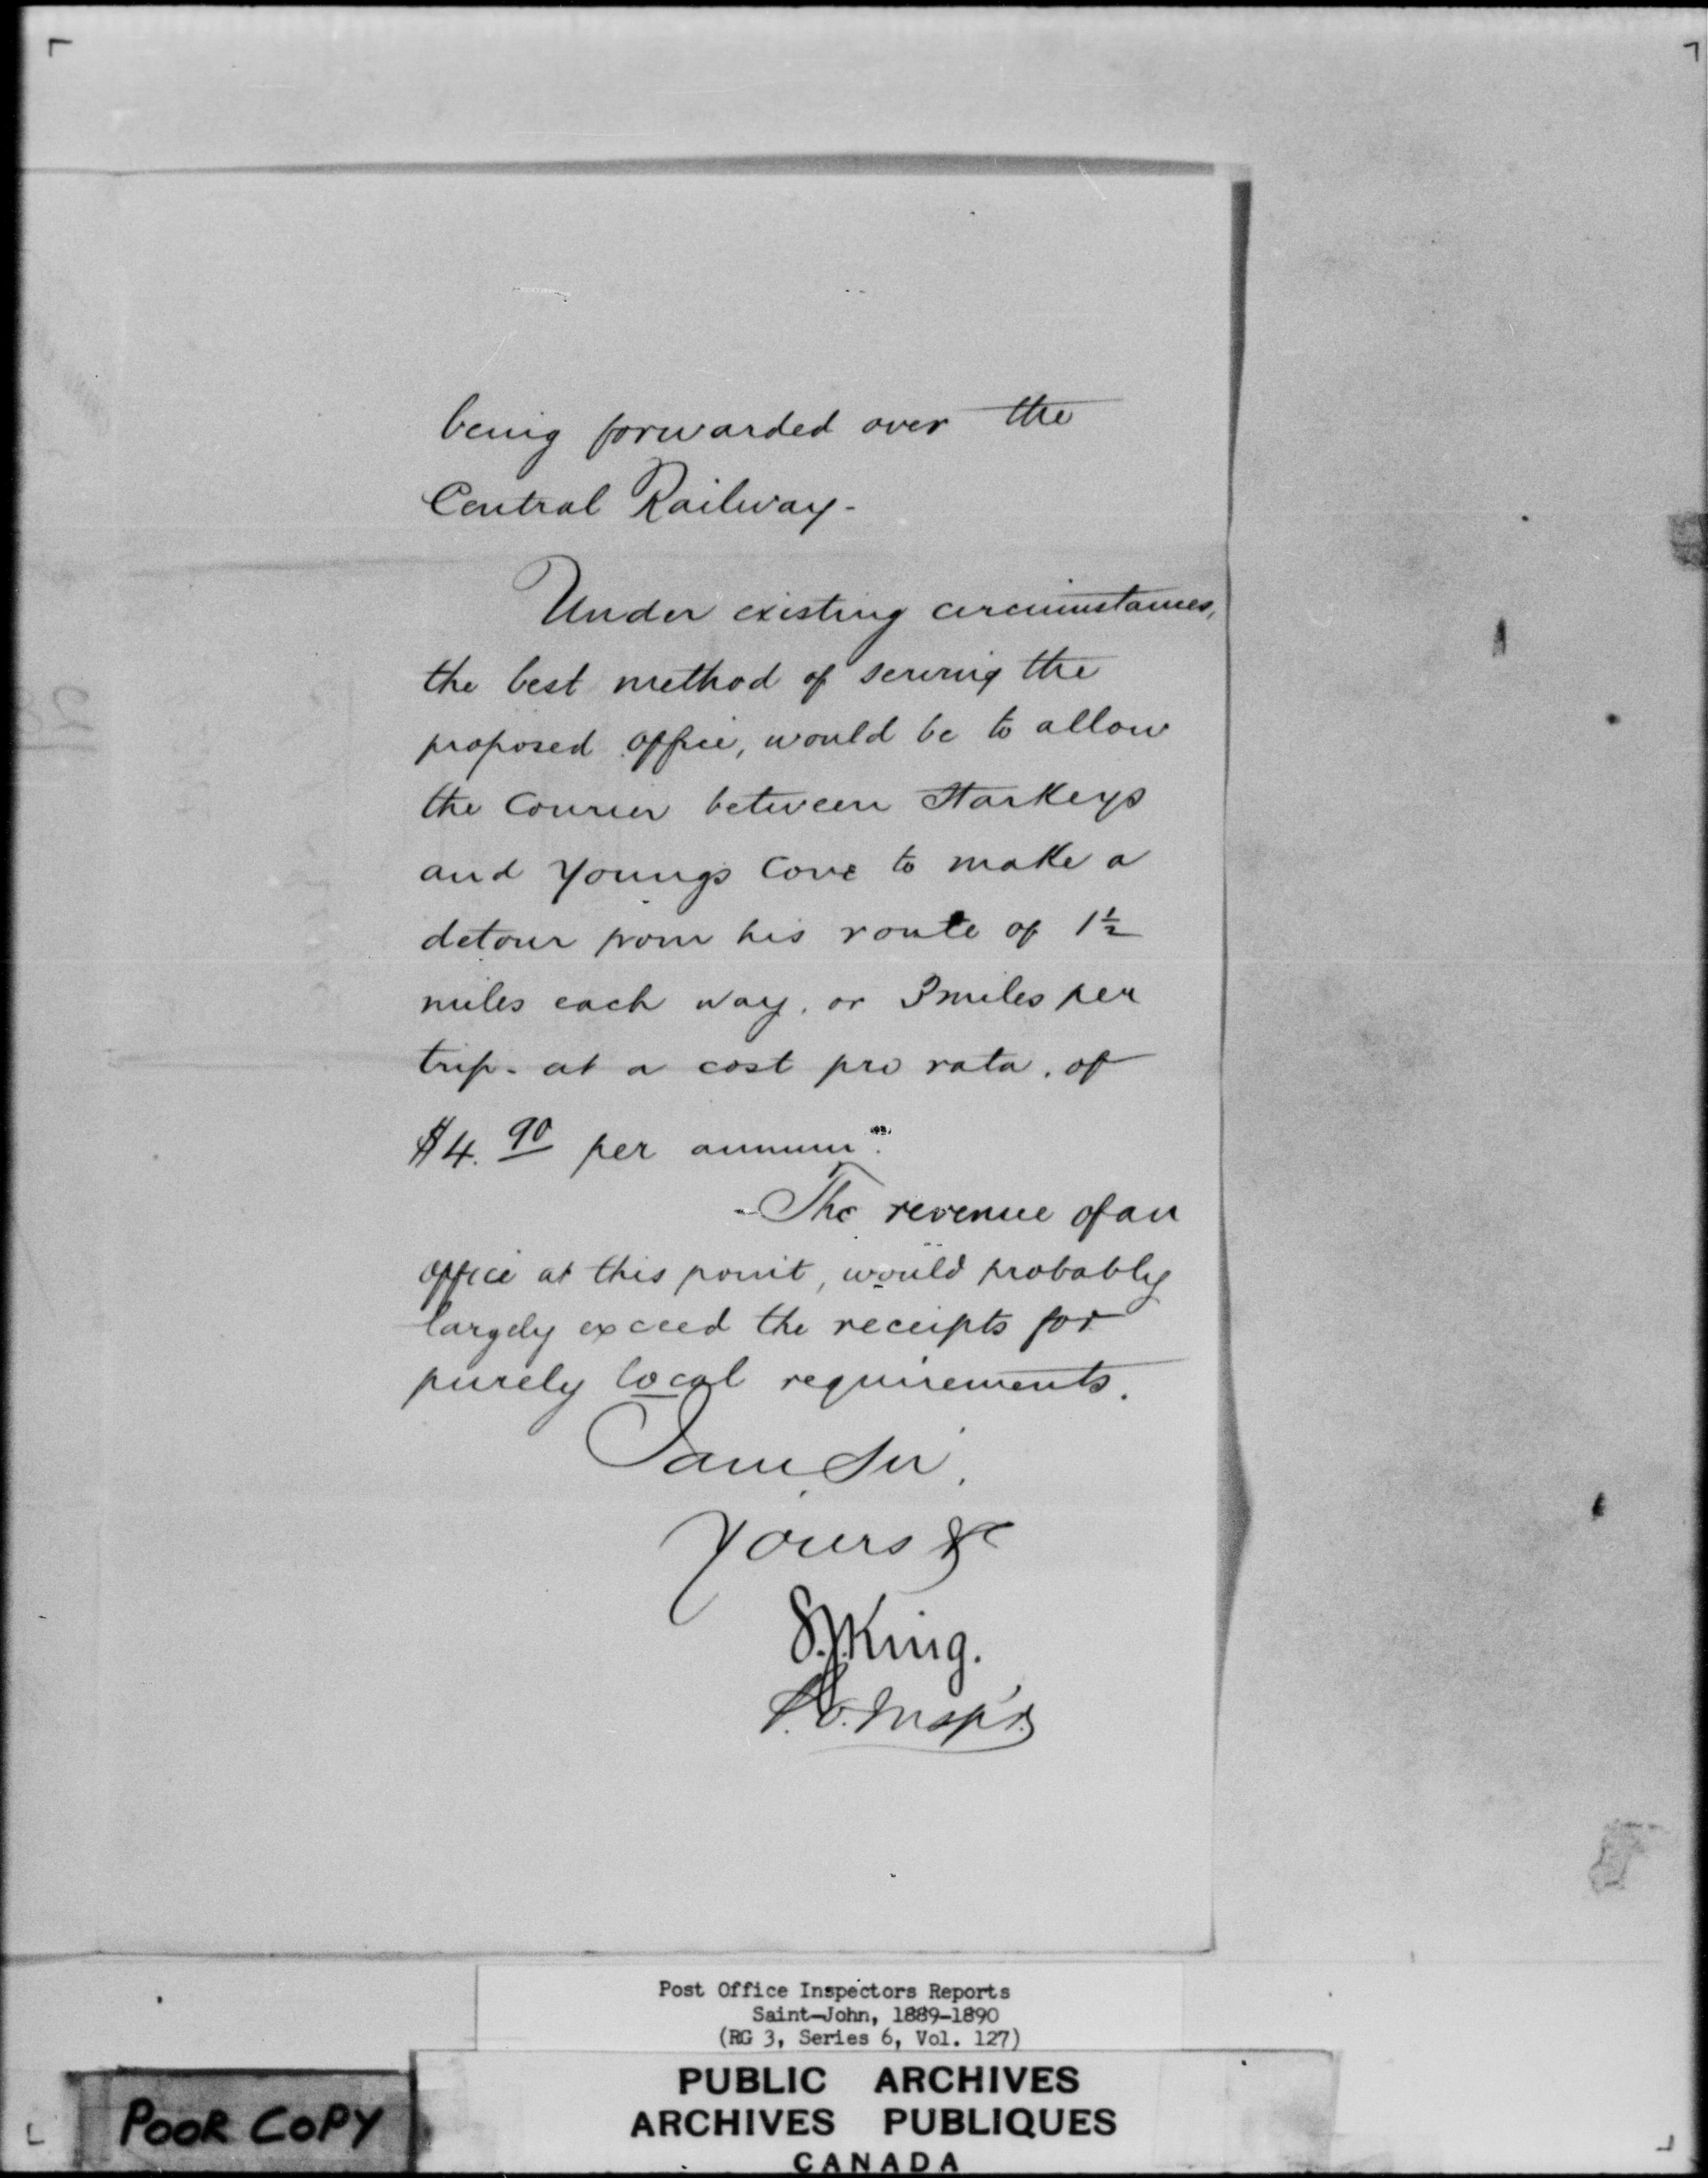 being forwarded over the
Central Railway-
Under existing circumstances,
the best method of serving the
proposed office, would be to allow
the Courier between Starkeys
and Youngs Cove to make a
detour from his route of 1½
miles each way, or 3 miles per
trip. at a cost pro rata. of
$4.90 per annum.
- The revenue of an
office at this point, would probably
largely exceed the receipts for
purely local requirements.
I am Sir,
Yours &c
S.J.King.
P.O. Inspr.
Post Office Inspectors Reports
Saint-John, 1889-1890
(RG 3, Series 6, Vol. 127)
PUBLIC ARCHIVES
ARCHIVES PUBLIQUES
CANADA
POOR COPY